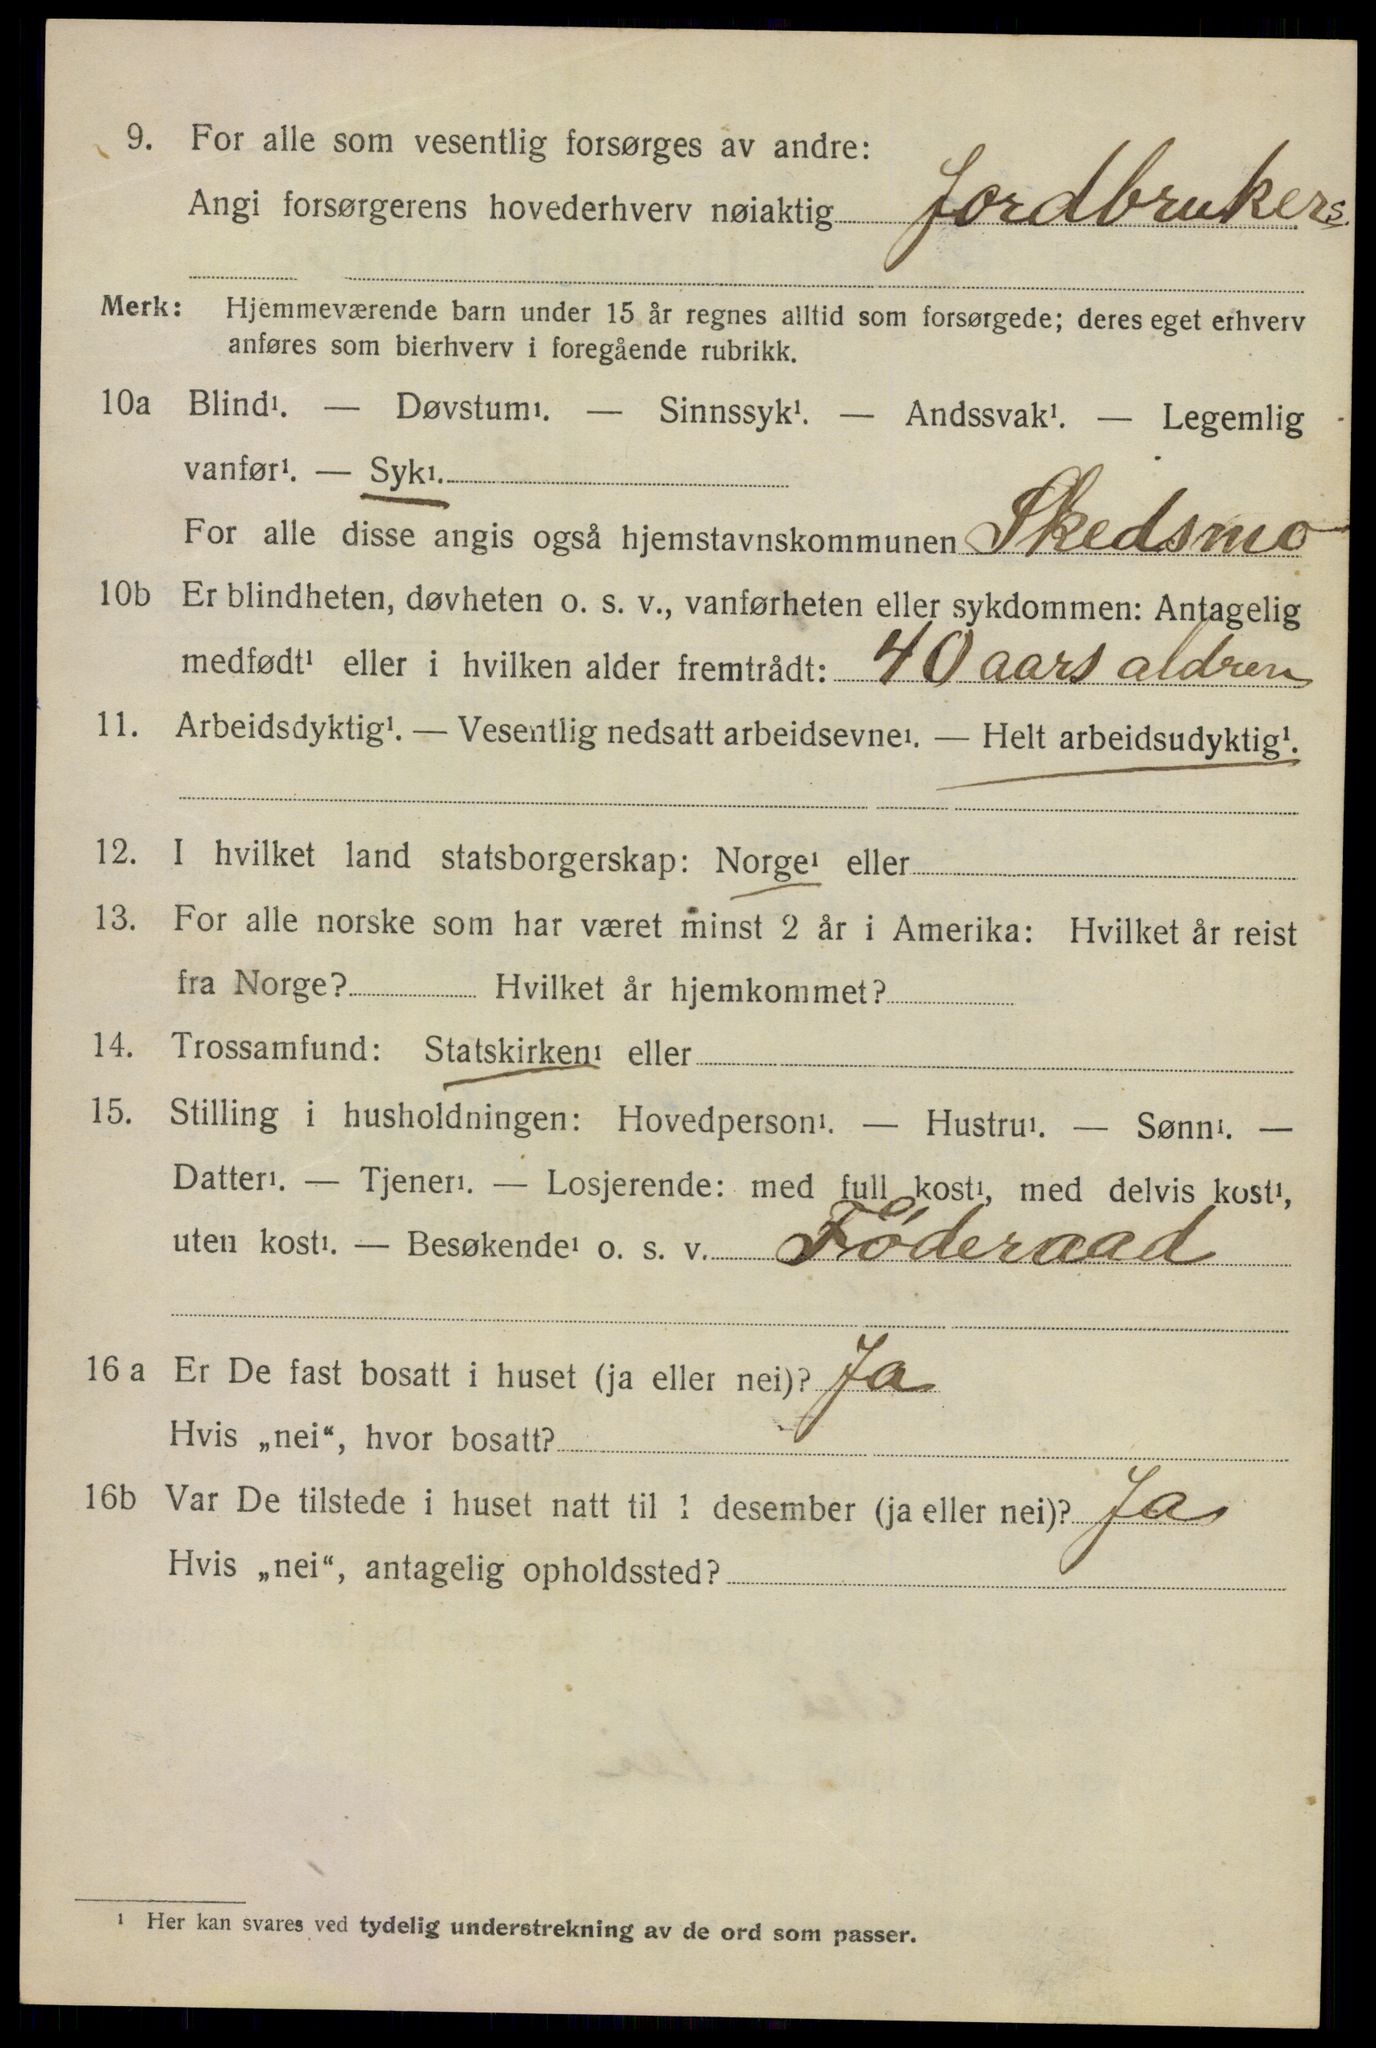 9. For alle som vesentlig forsørges av andre:
Angi forsørgerens hovederhverv nøiaktig Jordbrukers.
Merk: Hjemmeværende barn under 15 år regnes alltid som forsørgede; deres eget erhverv
anføres som bierhverv i foregående rubrikk.
10a Blind¹. — Døvstum¹. — Sinnssyk¹. — Andssvak¹. — Legemlig
vanfør¹. — Syk¹.
For alle disse angis også hjemstavnskommunen Skedsmo
10b Er blindheten, døvheten o. s. v., vanførheten eller sykdommen: Antagelig
medfødt¹ eller i hvilken alder fremtrådt: 40 aars aldren
11. Arbeidsdyktig¹. — Vesentlig nedsatt arbeidsevne¹. — Helt arbeidsudyktig¹.
12. I hvilket land statsborgerskap: Norge¹ eller
13. For alle norske som har været minst 2 år i Amerika: Hvilket år reist
fra Norge? Hvilket år hjemkommet?
14. Trossamfund: Statskirken¹ eller
15. Stilling i husholdningen: Hovedperson¹. — Hustru¹. — Sønn¹. —
Datter¹. — Tjener¹. — Losjerende: med full kost¹, med delvis kost¹,
uten kost¹. — Besøkende¹ o. s. v. Föderaad
16 a Er De fast bosatt i huset (ja eller nei)? Ja
Hvis „nei“, hvor bosatt?
16b Var De tilstede i huset natt til 1 desember (ja eller nei)? Ja
Hvis „nei“, antagelig opholdssted?
¹ Her kan svares ved tydelig understrekning av de ord som passer.